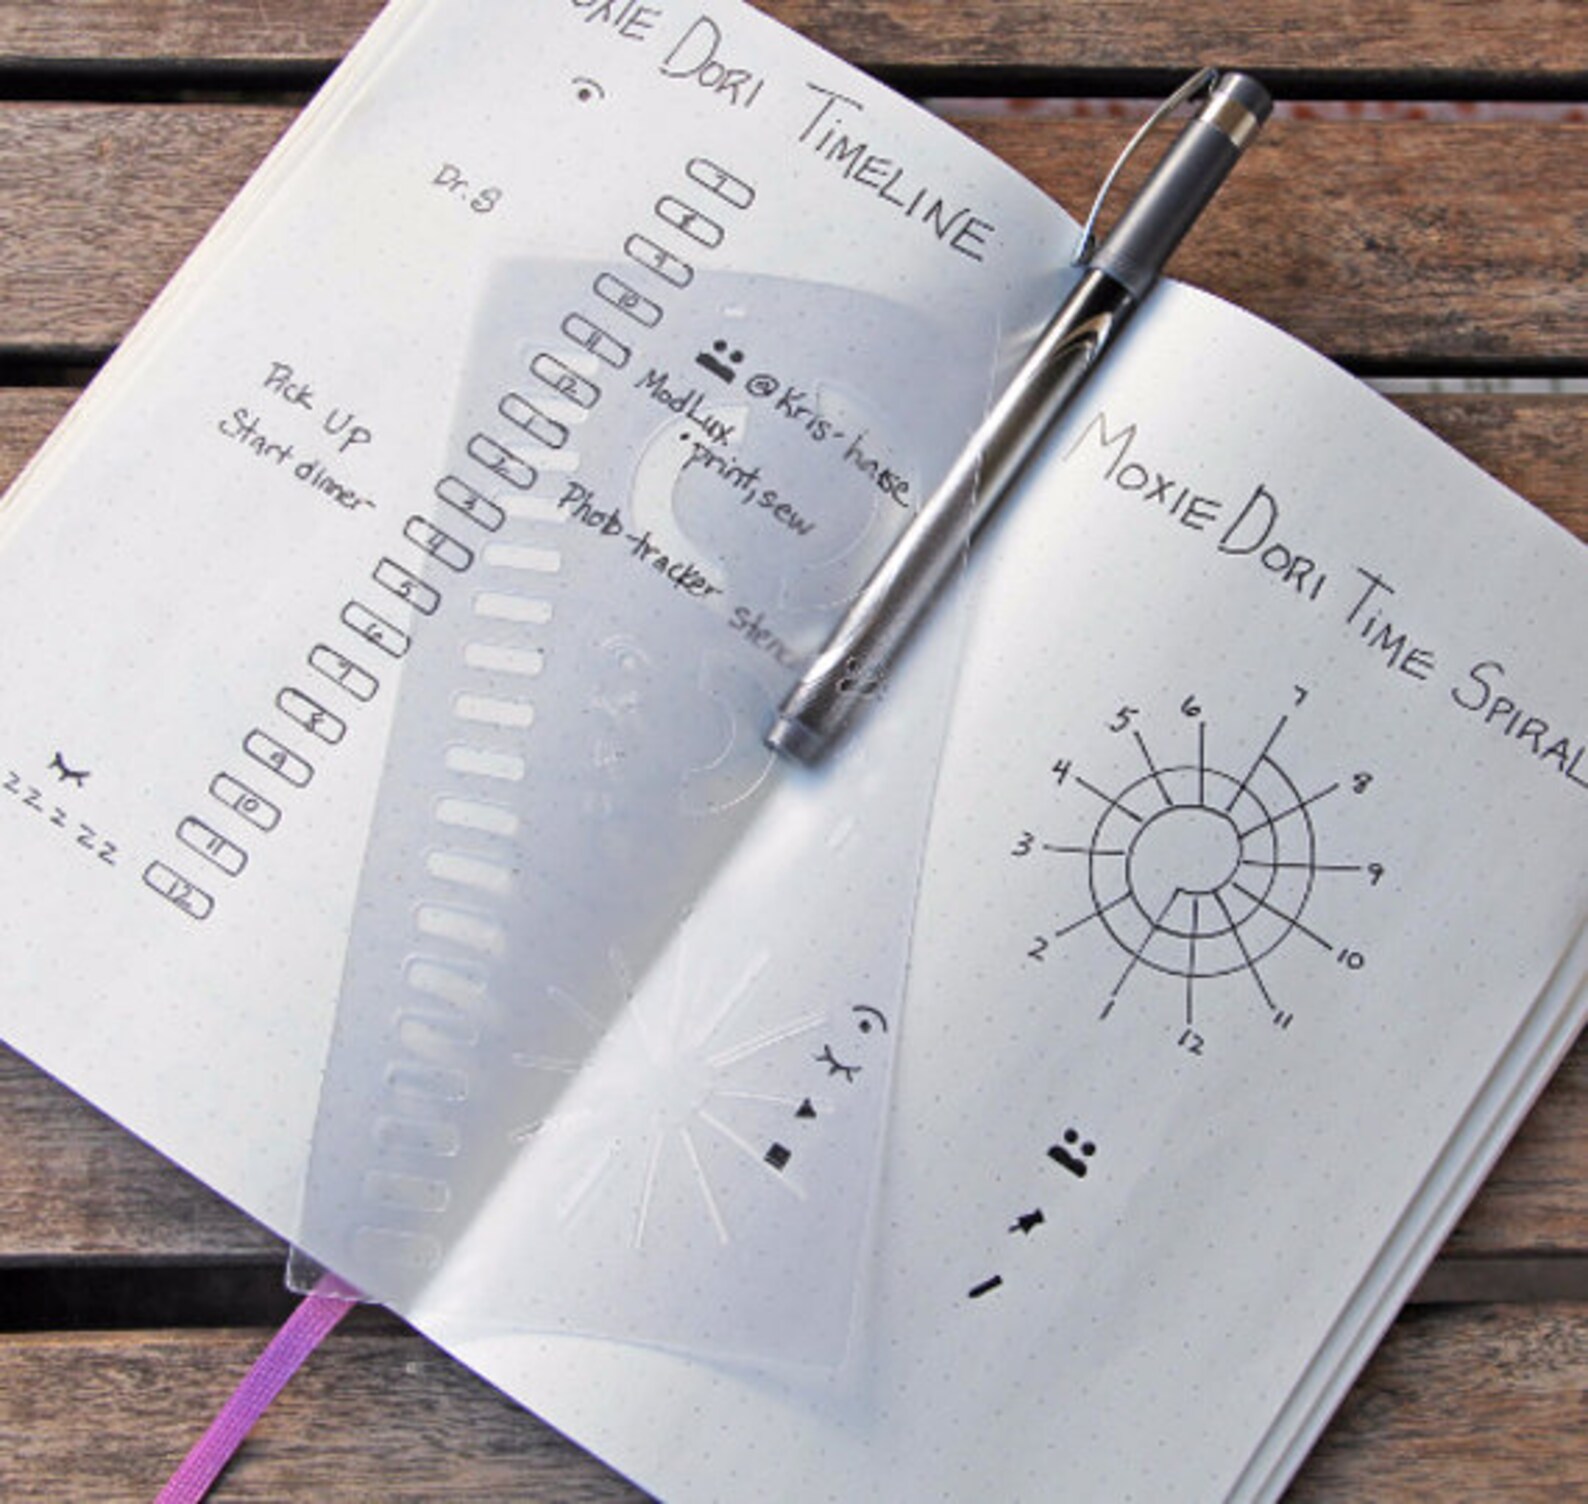 DORI TIMELINE
Dr. 8
7
8
9
10
11
12
1
2
3
4
5
6
7
8
9
10
11
12
@Kris-house
ModLux
• print, sew
Photo-tracker
Pick Up
Start dinner
zzzzz
MOXIE DORI TIME SPIRAL
7
8
9
10
11
12
1
2
3
4
5
6